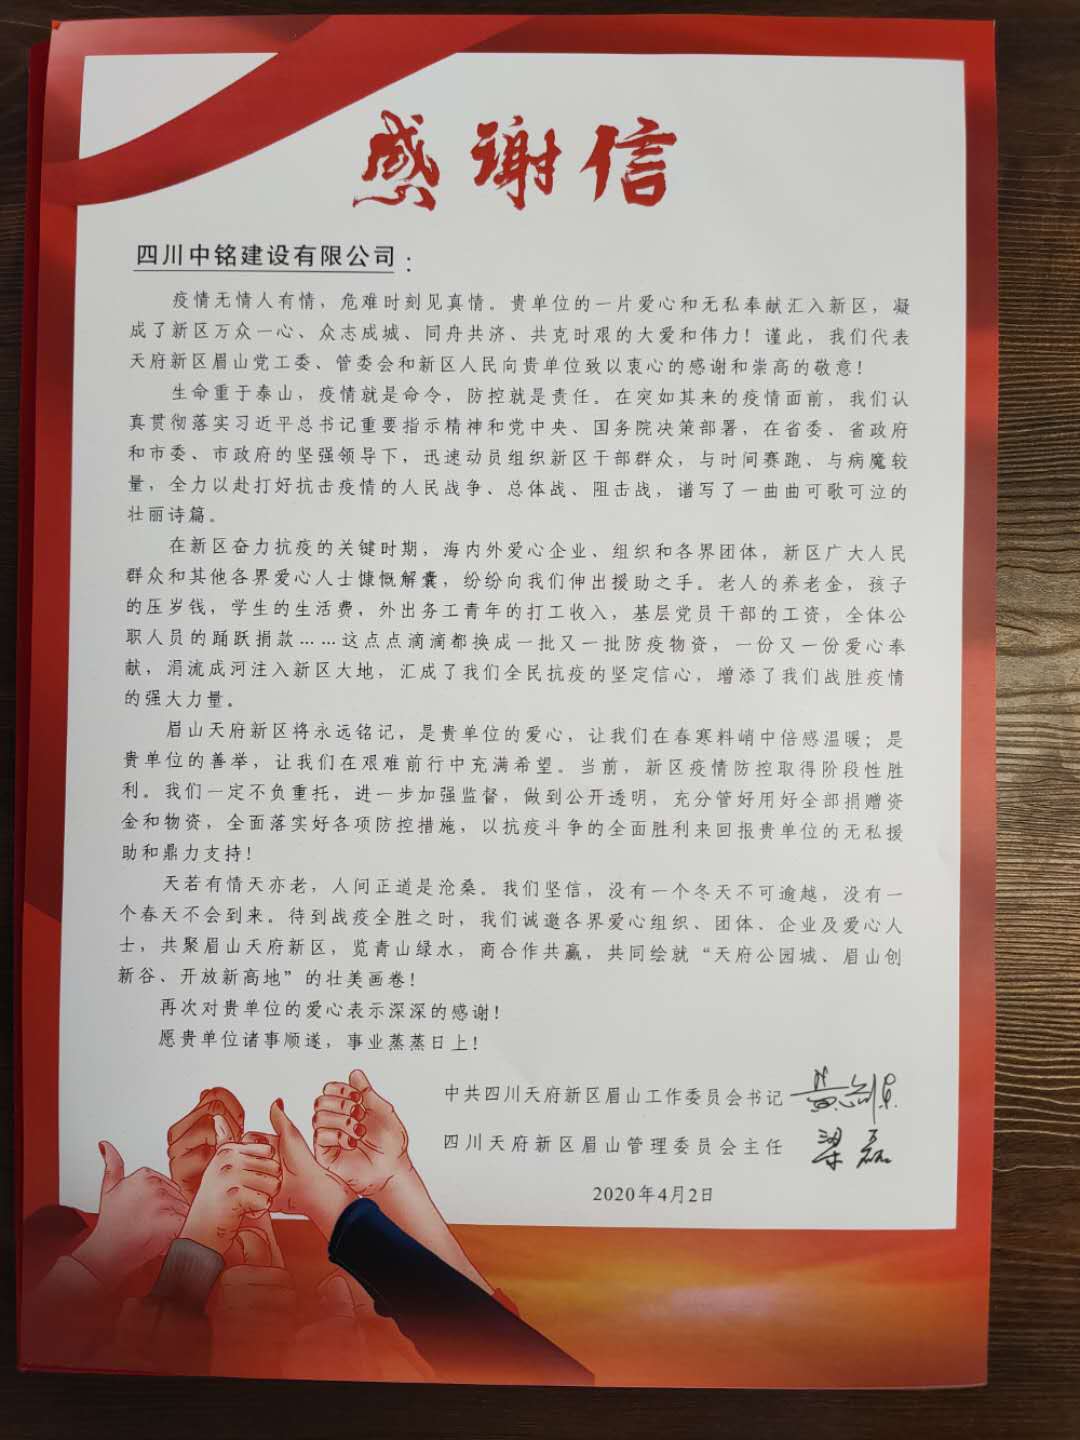 感谢信
四川中铭建设有限公司：
疫情无情人有情，危难时刻见真情。贵单位的一片爱心和无私奉献汇入新区，凝
成了新区万众一心、众志成城、同舟共济、共克时艰的大爱和伟力！谨此，我们代表
天府新区眉山党工委、管委会和新区人民向贵单位致以衷心的感谢和崇高的敬意！
生命重于泰山，疫情就是命令，防控就是责任。在突如其来的疫情面前，我们认
真贯彻落实习近平总书记重要指示精神和党中央、国务院决策部署，在省委、省政府
和市委、市政府的坚强领导下，迅速动员组织新区干部群众，与时间赛跑、与病魔较
量，全力以赴打好抗击疫情的人民战争、总体战、阻击战，谱写了一曲曲可歌可泣的
壮丽诗篇。
在新区奋力抗疫的关键时期，海内外爱心企业、组织和各界团体，新区广大人民
群众和其他各界爱心人士慷慨解囊，纷纷向我们伸出援助之手。老人的养老金，孩子
的压岁钱，学生的生活费，外出务工青年的打工收入，基层党员干部的工资，全体公
职人员的踊跃捐款……这点点滴滴都换成一批又一批防疫物资，一份又一份爱心奉
献，涓流成河注入新区大地，汇成了我们全民抗疫的坚定信心，增添了我们战胜疫情
的强大力量。
眉山天府新区将永远铭记，是贵单位的爱心，让我们在春寒料峭中倍感温暖；是
贵单位的善举，让我们在艰难前行中充满希望。当前，新区疫情防控取得阶段性胜
利。我们一定不负重托，进一步加强监督，做到公开透明，充分管好用好全部捐赠资
金和物资，全面落实好各项防控措施，以抗疫斗争的全面胜利来回报贵单位的无私援
助和鼎力支持！
天若有情天亦老，人间正道是沧桑。我们坚信，没有一个冬天不可逾越，没有一
个春天不会到来。待到战疫全胜之时，我们诚邀各界爱心组织、团体、企业及爱心人
士，共聚眉山天府新区，览青山绿水，商合作共赢，共同绘就“天府公园城、眉山创
新谷、开放新高地”的壮美画卷！
再次对贵单位的爱心表示深深的感谢！
愿贵单位诸事顺遂，事业蒸蒸日上！
中共四川天府新区眉山工作委员会书记
四川天府新区眉山管理委员会主任 梁磊
2020年4月2日